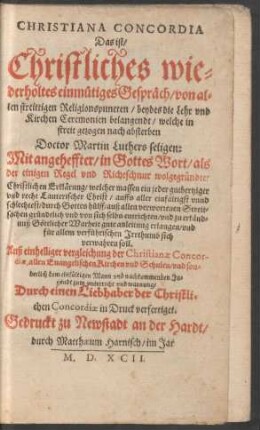 CHRISTIANA CONCORDIA
Das ist/
Christliches wie-
derholtes einmütiges Gespräch/ von al-
len streittigen Religionspuncten / beydes die Lehr vnd
Kirchen Ceremonien belangendt/ welche in
streit gezogen nach absterben
Doctor Martin Luthers seligen:
Mit angeheffter/ in Gottes Wort/ als
der einigen Regel vnd Richtschnur wolgegründter
Christlichen Erklärung/ welcher massen ein jeder guthertziger
vnd recht Lutterischer Christ / auffs aller einfältigst vnnd
schlechtest/ durch Gottes hülff/ auß allen verworrenen Strei-
sachen gründtlich vnd von sich selbs entrichten/ vnd zu erkänd-
nuß Göttlicher Warheit gute anleitung erlangen/ vnd
für allem verführischen Irrthumb sich
verwahren soll.
Auß einhelliger vergleichung der Christianæ Concor-
diæ, allen Euangelischen Kirchen vnd Schulen/ vnd son-
derlich dem einfältigen Mann vnd nachkommenden Ju-
gendt zum vnterricht vnd warnung/
Durch einen Liebhaber der Christli-
chen Concordiæ in Druck verfertiget.
Gedruckt zu Newstadt an der Hardt/
durch Matthæum Harnisch/ im Jar
M. D. XCII.